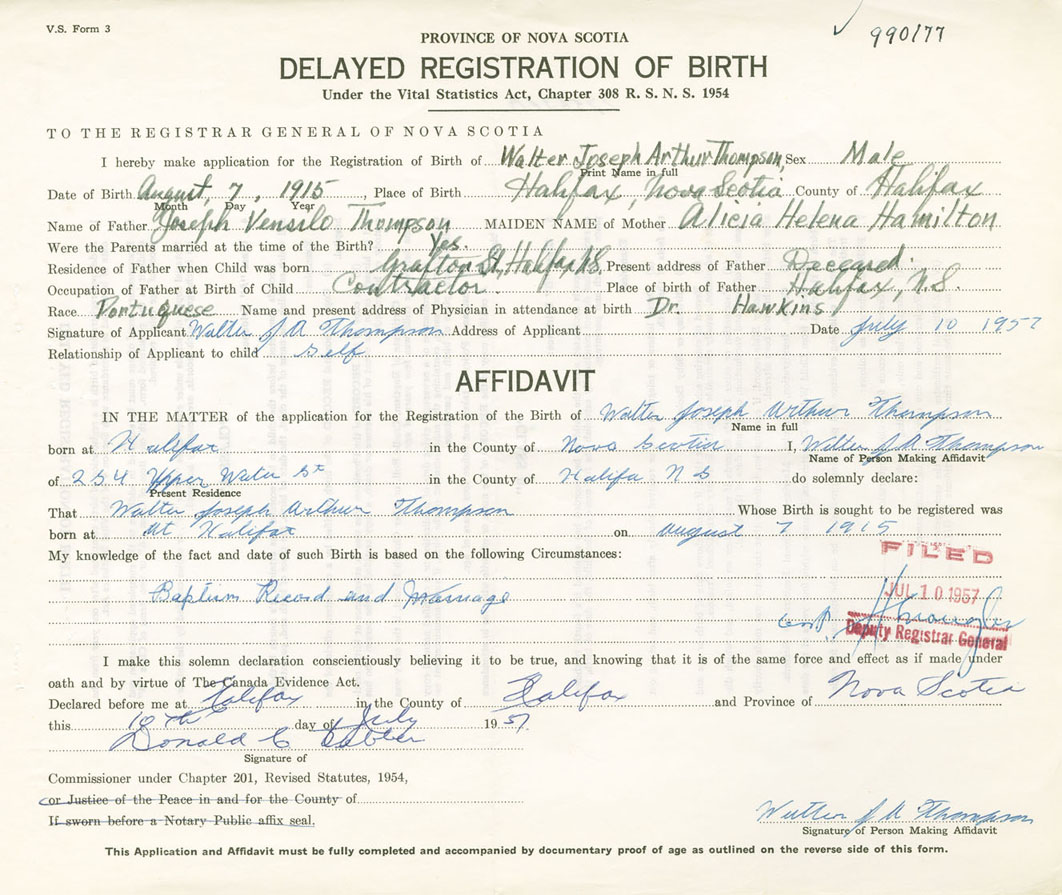 V.S. Form 3
990/77
PROVINCE OF NOVA SCOTIA
DELAYED REGISTRATION OF BIRTH
Under the Vital Statistics Act, Chapter 308 R. S. N. S. 1954
TO THE REGISTRAR GENERAL OF NOVA SCOTIA
I hereby make application for the Registration of Birth of Walter Joseph Arthur Thompson, Sex Male
Print Name in full
Date of Birth August, 7, 1915 Place of Birth Halifax, Nova Scotia County of Halifax
Month Day Year
Name of Father Joseph Thompson MAIDEN NAME of Mother Alicia Helena Hamilton
Were the Parents married at the time of the Birth? Yes.
Residence of Father when Child was born Grafton St, Halifax N.S. Present address of Father Deceased.
Occupation of Father at Birth of Child Contractor. Place of birth of Father Halifax, N.S.
Race Portuguese Name and present address of Physician in attendance at birth Dr. Hawkins
Signature of Applicant Walter J A Thompson Address of Applicant Date July 10 1957
Relationship of Applicant to child Self
AFFIDAVIT
IN THE MATTER of the application for the Registration of the Birth of Walter Joseph Arthur Thompson
Name in full
born at Halifax in the County of Nova Scotia I, Walter J A Thompson
Name of Person Making Affidavit
of 254 Upper Water St in the County of Halifa N S do solemnly declare:
Present Residence
That Walter Joseph Arthur Thompson Whose Birth is sought to be registered was
born at At Halifax on August 7 1915
My knowledge of the fact and date of such Birth is based on the following Circumstances:
FILED
Baptism Record and Marriage
JUL 10 1957
Deputy Registrar General
I make this solemn declaration conscientiously believing it to be true, and knowing that it is of the same force and effect as if made under
oath and by virtue of The Canada Evidence Act.
Declared before me at Halifax in the County of Halifax and Province of Nova Scotia
this 10th day of July 1957.
Donald C
Signature of
Commissioner under Chapter 201, Revised Statutes, 1954,
or Justice of the Peace in and for the County of
If sworn before a Notary Public affix seal.
Walter J A Thompson
Signature of Person Making Affidavit
This Application and Affidavit must be fully completed and accompanied by documentary proof of age as outlined on the reverse side of this form.